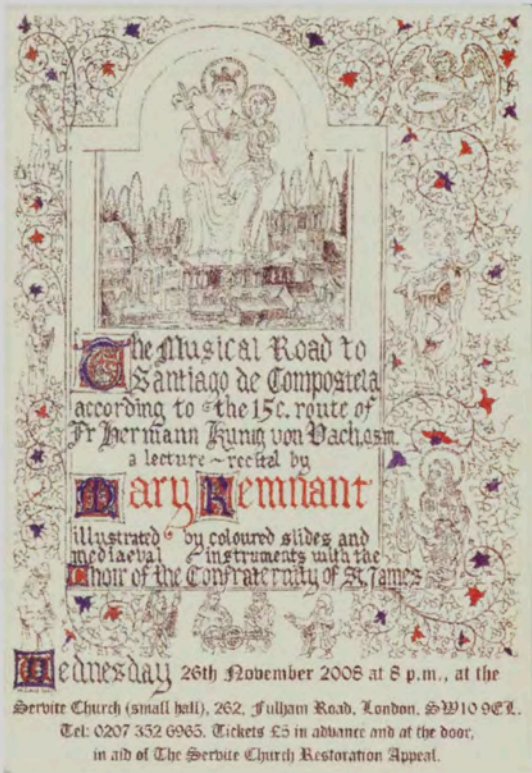 The Musical Road to
Santiago de Compostela
according to the 15c. route of
Fr Hermann Kunig von Vach, osm.
a lecture ~ recital by
Mary Remnant
illustrated by coloured slides and
mediaeval instruments with the
Choir of the Confraternity of St. James
Wednesday 26th November 2008 at 8 p.m., at the
Servite Church (small hall), 262, Fulham Road, London, SW10 9EL.
Tel: 0207 352 6965. Tickets £5 in advance and at the door,
in aid of The Servite Church Restoration Appeal.